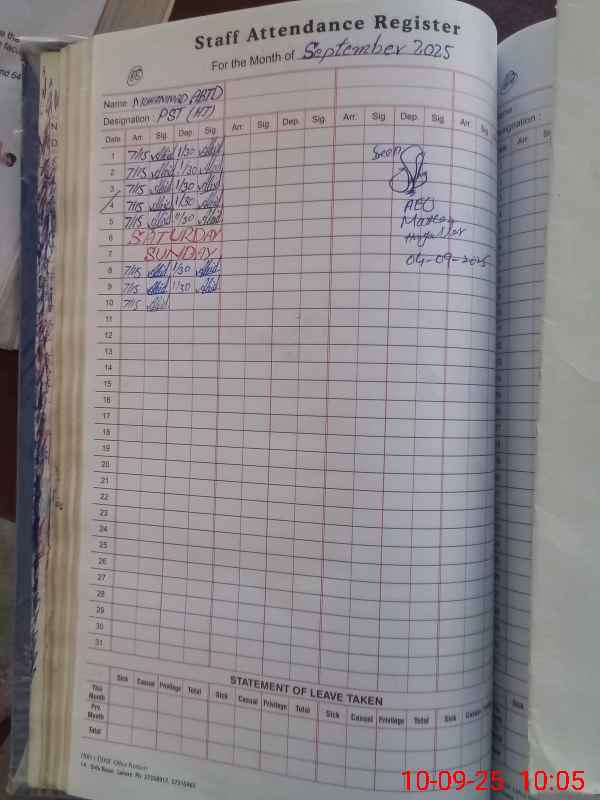 Staff Attendance Register
For the Month of September 2025
Name MOHAMMAD
Designation : PST (HT)
Date Arr. Sig. Dep. Sig. Arr. Sig. Dep. Sig. Arr. Sig. Dep. Sig. Arr. Sig.
1 7/15 1/30 Seen
2 7/15 1/30
3 7/15 1/30
4 7/15 1/30 AEO
5 7/15 1/30
6 SATURDAY
7 SUNDAY 04-09-2025
8 7/15 1/30
9 7/15 1/30
10 7/15
11
12
13
14
15
16
17
18
19
20
21
22
23
24
25
26
27
28
29
30
31
STATEMENT OF LEAVE TAKEN
Sick Casual Privilege Total Sick Casual Privilege Total Sick Casual Privilege Total Sick
This Month
Pre. Month
Total
10-09-25 10:05